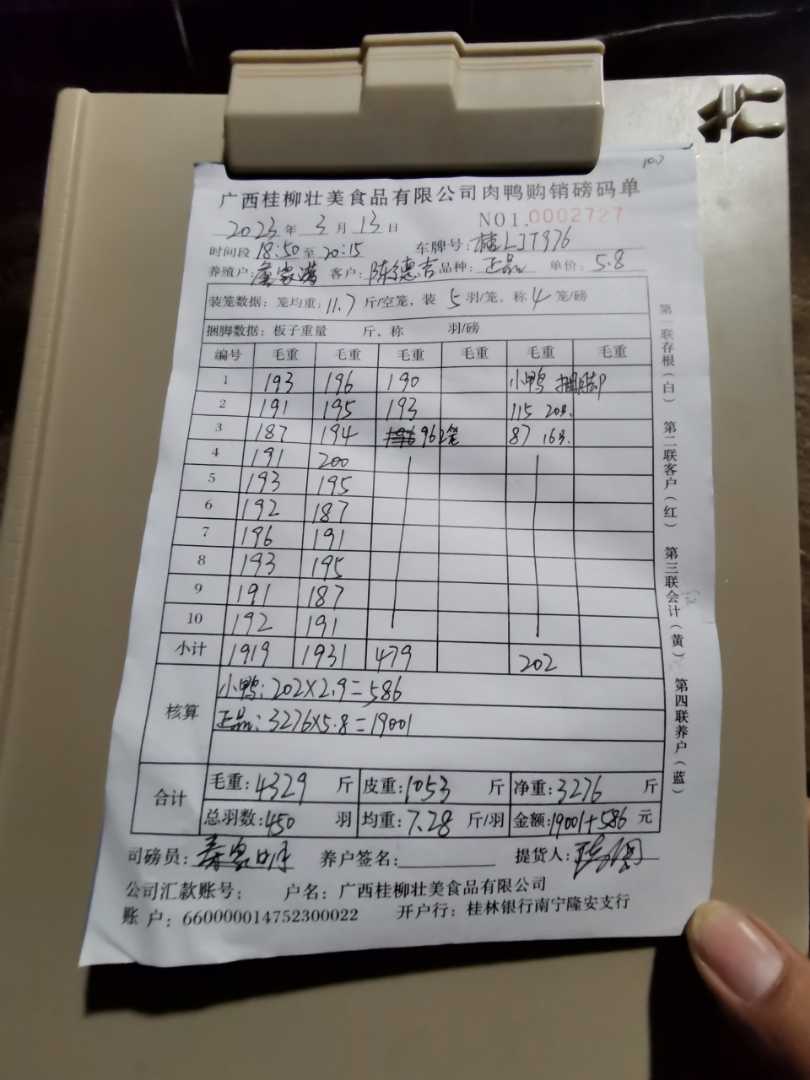 10.7
广西桂柳壮美食品有限公司肉鸭购销磅码单
2023年3月13日 NO1.0002727
时间段 18:50至20:15 车牌号:桂LJT976
养殖户: 客户:陈德吉 品种:正品 单价:5.8
装笼数据:笼均重:11.7斤/空笼,装5羽/笼,称4笼/磅
捆脚数据:板子重量 斤、称 羽/磅
编号 毛重 毛重 毛重 毛重 毛重 毛重
1 193 196 190 小鸭 捆脚
2 191 195 193 115 20羽
3 187 194 96 2笼 87 16羽
4 191 200
5 193 195
6 192 187
7 196 191
8 193 195
9 191 187
10 192 191
小计 1919 1931 479 202
核算 小鸭:202X2.9=586
正品:3276X5.8=19001
合计 毛重:4329斤 皮重:1053斤 净重:3276斤
总羽数:450羽 均重:7.28斤/羽 金额:19001+586元
司磅员: 养户签名: 提货人:
公司汇款账号: 户名:广西桂柳壮美食品有限公司
账户:660000014752300022 开户行:桂林银行南宁隆安支行
第一联存根(白) 第二联客户(红) 第三联会计(黄) 第四联养户(蓝)